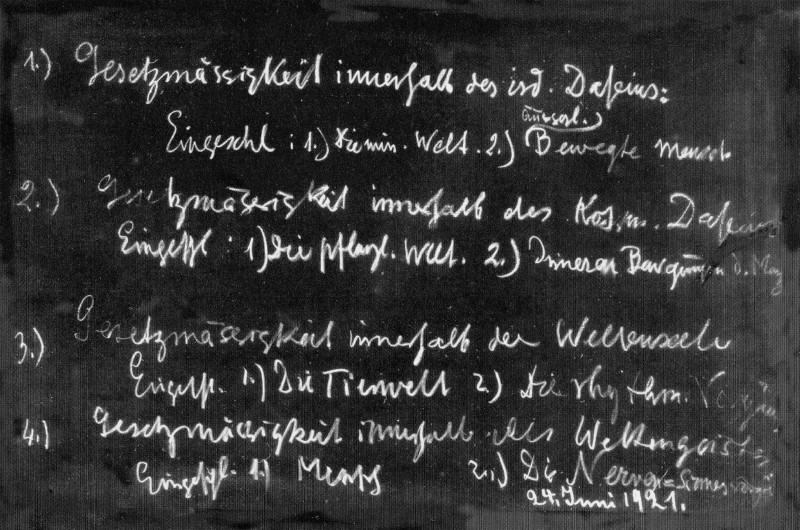 1.) Gesetzmässigkeit innerhalb des ird. Daseins:
äusserl.
Eingeschl : 1.) die min. Welt. 2.) Bewegte Mensch
2.) Gesetzmässigkeit innerhalb des Kosm. Daseins
Eingeschl : 1) Die pflanzl. Welt. 2.) Inneren Bewegungen d. M
3.) Gesetzmässigkeit innerhalb der Weltenseele
Eingesch. 1.) Die Tierwelt 2.) Die rhythm.
4.) Gesetzmässigkeit innerhalb des Weltengeistes
Eingeschl. 1.) Mensch 2.) Die Nerven=Sinnes
24. Juni 1921.